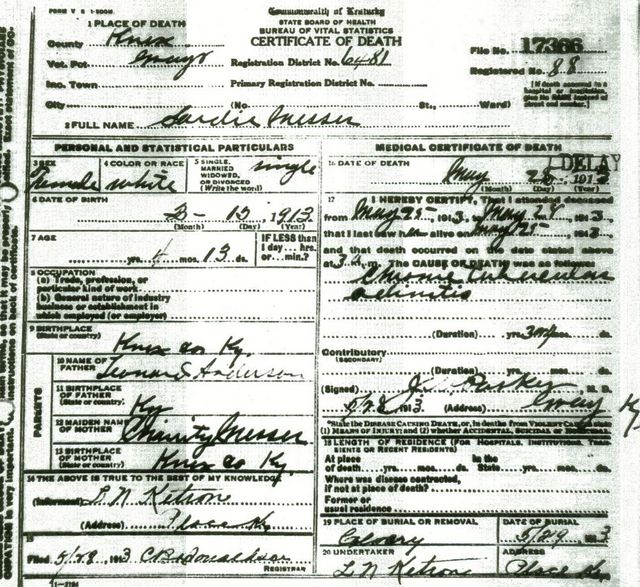 FORM V S 1-200M.
Commonwealth of Kentucky
STATE BOARD OF HEALTH
BUREAU OF VITAL STATISTICS
CERTIFICATE OF DEATH
1 PLACE OF DEATH
County Knox
Vot. Pct
Inc. Town
City (No. St., Ward)
Registration District No. 6481
Primary Registration District No.
File No. 17366
Registered No. 88
[If death occurred in a hospital or institution, give its NAME instead of street and number.]
2 FULL NAME Sardie Messer
PERSONAL AND STATISTICAL PARTICULARS
3 SEX Female
4 COLOR OR RACE white
5 SINGLE, MARRIED WIDOWED, OR DIVORCED (Write the word) single
6 DATE OF BIRTH
15 1913
(Month) (Day) (Year)
7 AGE
yrs. mos. 13 ds.
IF LESS than 1 day... hrs. or...min.?
8 OCCUPATION
(a) Trade, profession, or particular kind of work
(b) General nature of industry business or establishment in which employed (or employer)
9 BIRTHPLACE
(State or country) Knox co Ky.
PARENTS
10 NAME OF FATHER Leonard Anderson
11 BIRTHPLACE OF FATHER (State or country) Ky
12 MAIDEN NAME OF MOTHER Charity Messer
13 BIRTHPLACE OF MOTHER (State or country) Knox co Ky
14 THE ABOVE IS TRUE TO THE BEST OF MY KNOWLEDGE
(Informant) L N Ketrone
(Address) Place Ky
15
Filed 5/28 1913 C B Donaldson
REGISTRAR
11-3184
MEDICAL CERTIFICATE OF DEATH
16 DATE OF DEATH
DELAY
May 28 1913
(Month) (Day) (Year)
17 I HEREBY CERTIFY, That I attended deceased
from May 25 1913, to May 28 1913,
that I last saw h alive on May 25 1913,
and that death occurred on the date stated above
at 3 m. The CAUSE OF DEATH was as follows:
Chronic tuberculous
(Duration) yrs. mos. ds.
Contributory
(SECONDARY)
(Duration) yrs. mos. ds.
(Signed) J Parker M. D.
5/28 1913 (Address) Gray Ky
*State the DISEASE CAUSING DEATH, or, in deaths from VIOLENT CAUSES, state (1) MEANS OF INJURY; and (2) whether ACCIDENTAL, SUICIDAL or HOMICIDAL
18 LENGTH OF RESIDENCE (FOR HOSPITALS, INSTITUTIONS, TRANSIENTS OR RECENT RESIDENTS)
At place of death yrs. mos. ds. In the State yrs. mos. ds.
Where was disease contracted, if not at place of death?
Former or usual residence
19 PLACE OF BURIAL OR REMOVAL Calvary
DATE OF BURIAL 5/29 1913
20 UNDERTAKER L N Ketrone
ADDRESS Place Ky.